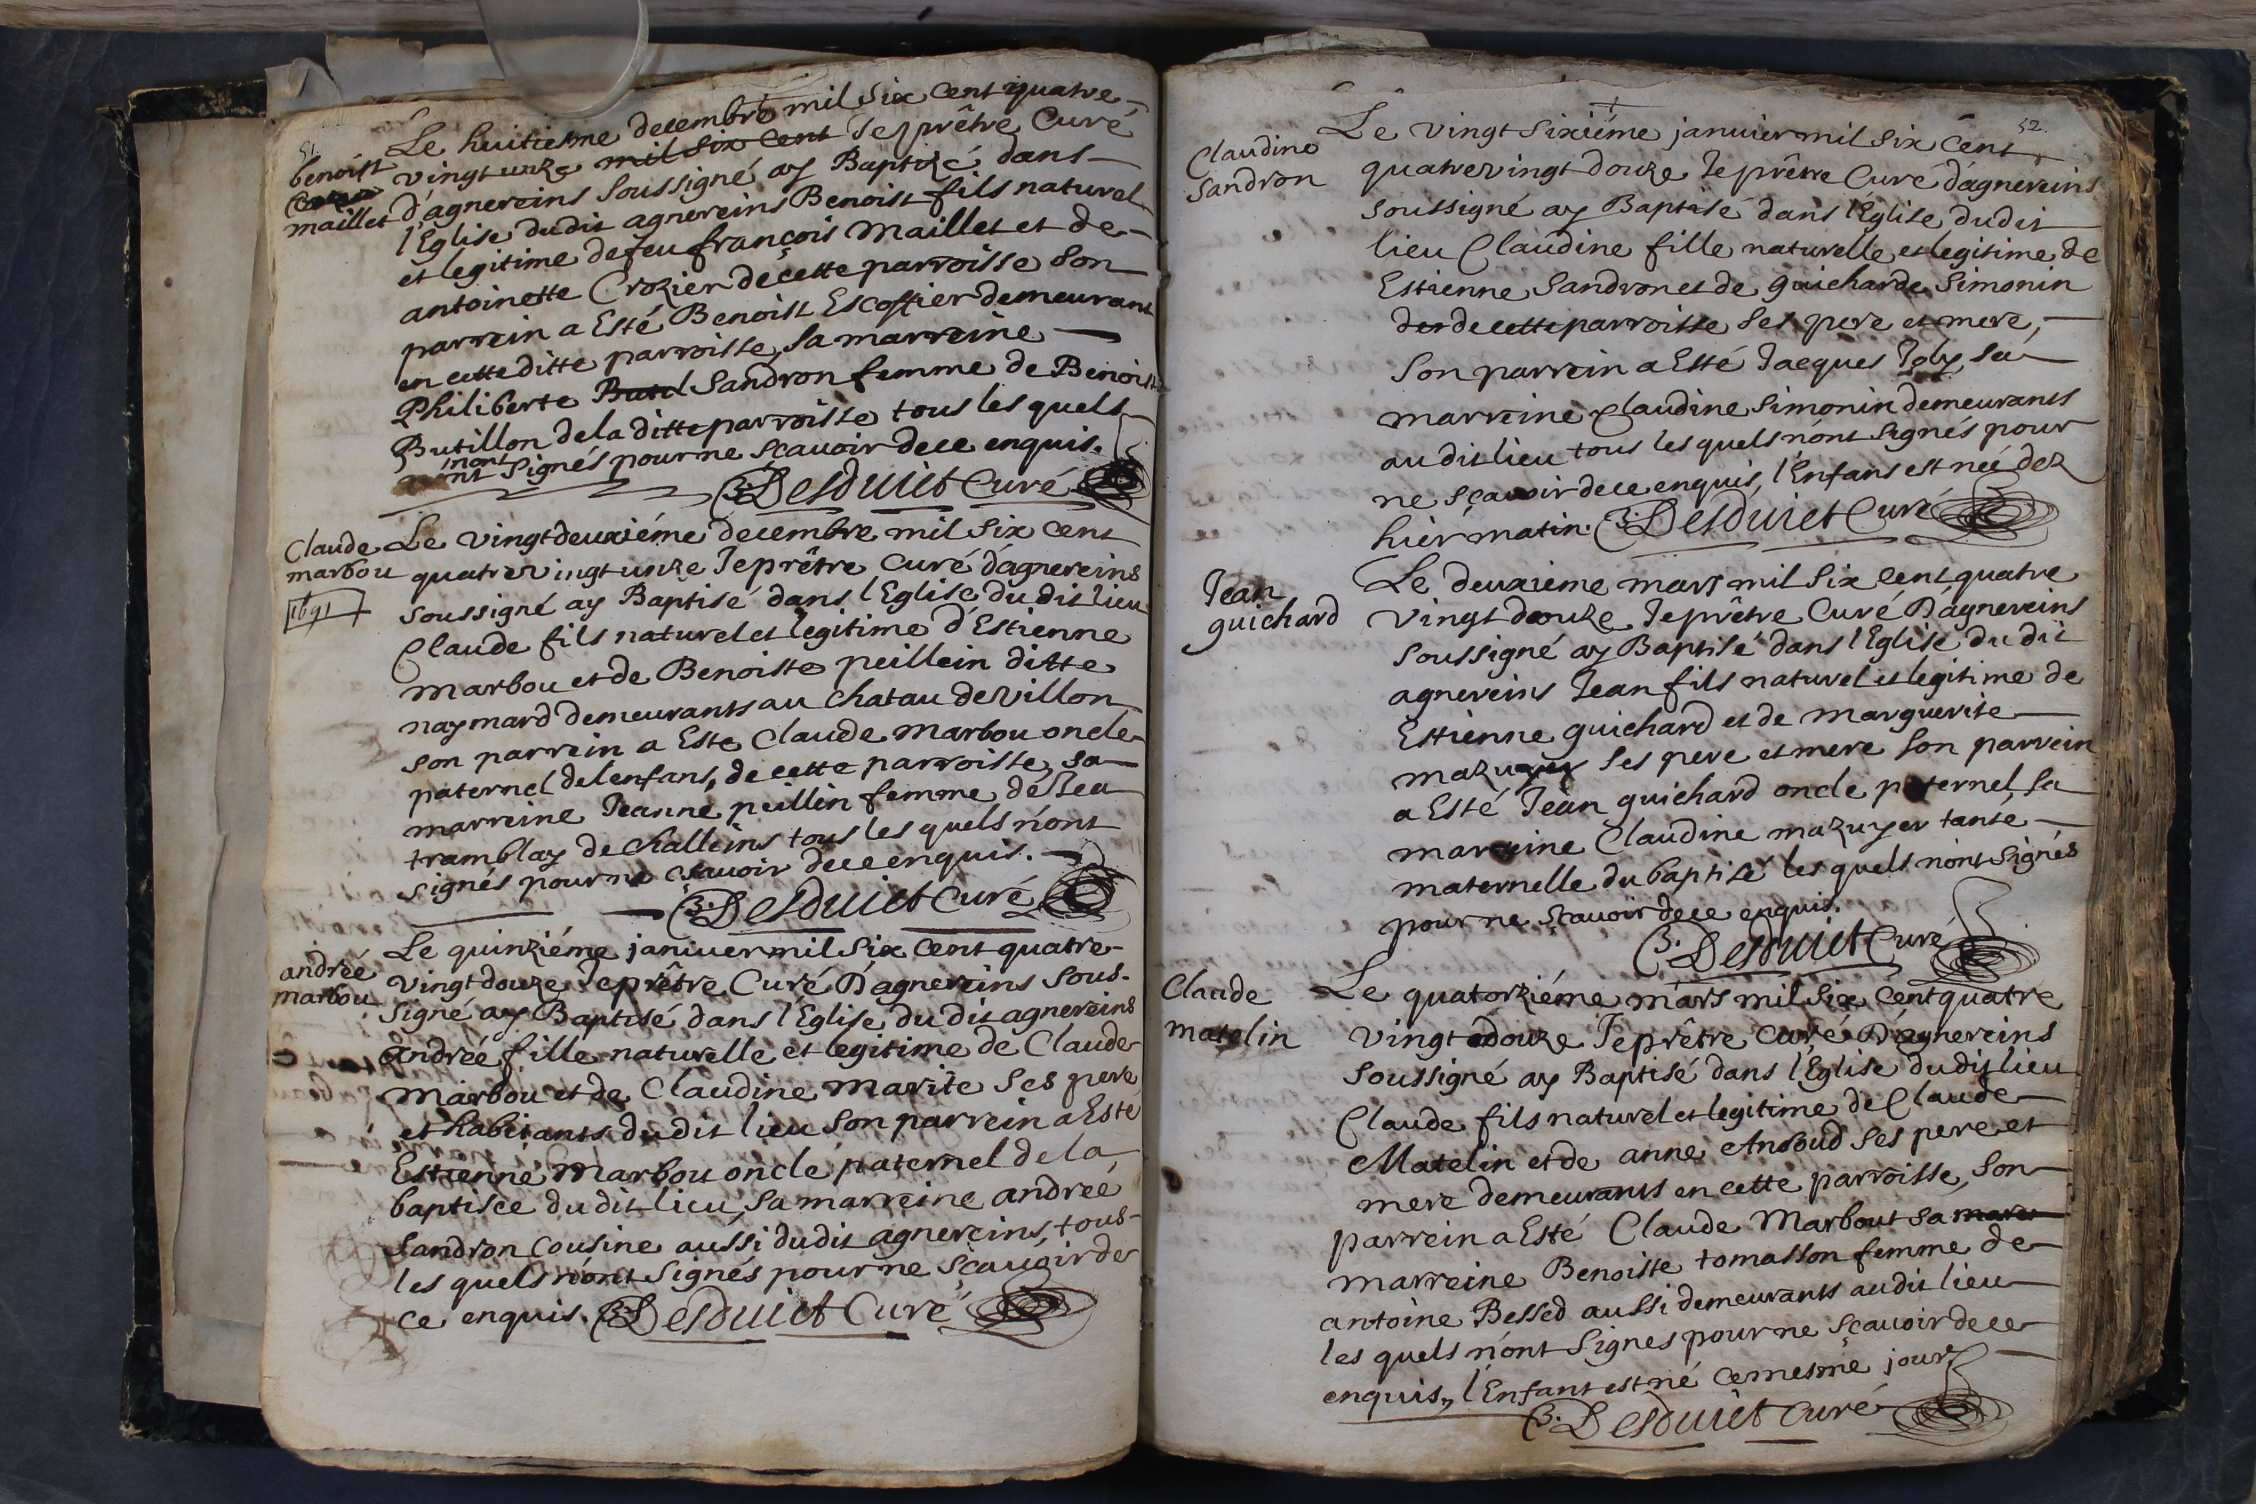 51.
benoist
maillet
Le huitiesme decembre mil six cent quatre-
vingt unze mil six cent Je prêtre Curé
d'agnereins soussigné ay Baptizé dans
l'Eglise dudit agnereins Benoist fils naturel
et legitime de feu françois Maillet et de
antoinette Crozier de cette parroisse son
parrein a Esté Benoist Escoffier demeurant
en cette ditte parroisse, sa marreine
Philiberte Sandron femme de Benoist
Butillon de la ditte parroisse tous les quels
n'ont signés pour ne sçauoir de ce enquis.
B. Desduiet Curé
Claude
marbou
1691
Le vingt deuxiéme decembre mil six cent
quatre vingt unze Je prêtre Curé d'agnereins
soussigné ay Baptisé dans l'Eglise du dit lieu
Claude fils naturel et legitime d'Estienne
marbou et de Benoiste peillein ditte
naymard demeurants au chatau de Villon
son parrein a Esté Claude marbou oncle
paternel de l'enfant, de cette parroisse, sa
marreine Jeanne peillin femme de
tramblay de challeins tous les quels n'ont
signés pour ne sçauoir de ce enquis.
B. Desduiet Curé
andrée
marbou
Le quinziéme januier mil six cent quatre-
vingt douze Je prêtre Curé D'agnereins sous-
signé ay Baptisé dans l'Eglise du dit agnereins
andrée fille naturelle et legitime de Claude
Marbou et de Claudine Marite ses pere
et habitants dudit lieu son parrein a Esté
Estienne Marbou oncle paternel de la
baptisée du dit lieu, sa marreine andrée
Sandron Cousine aussi du dit agnereins, tous-
les quels n'ont signés pour ne sçauoir de
ce enquis. B. Desduiet Curé
52.
Claudine
Sandron
Le vingt sixiéme januier mil six cent
quatre vingt douze Je prêtre Curé d'agnereins
soussigné ay Baptisé dans l'Eglise dudit
lieu Claudine fille naturelle et legitime de
Estienne Sandron et de guicharde Simonin
de cette parroisse ses pere et mere,
son parrein a Esté Jacques Joly, sa
marreine Claudine Simonin demeurants
au dit lieu tous les quels n'ont signés pour
ne sçauoir de ce enquis, l'Enfans est née dez
hier matin. B. Desduiet Curé
Jean
guichard
Le deuxieme mars mil six cent quatre
vingt douze Je prêtre Curé D'agnereins
soussigné ay Baptisé dans l'Eglise du dit
agnereins Jean fils naturel et legitime de
Estienne guichard et de Marguerite
mazuyer ses pere et mere son parrein
a Esté Jean guichard oncle paternel sa
marreine Claudine mazuyer tante
maternelle du baptisé les quels n'ont signés
pour ne sçauoir de ce enquis.
B. Desduiet Curé
Claude
matelin
Le quatorziéme mars mil six cent quatre
vingt douze Je prêtre Curé D'agnereins
soussigné ay Baptisé dans l'Eglise du dit lieu
Claude fils naturel et legitime de Claude
Matelin et de anne Ansoud ses pere et
mere demeurants en cette parroisse, son
parrein a Esté Claude Marbout sa
marreine Benoiste tomasson femme de
antoine Bessed aussi demeurants au dit lieu
les quels n'ont signes pour ne sçauoir de ce
enquis, l'Enfant est né ce mesme jour
B. Desduiet Curé